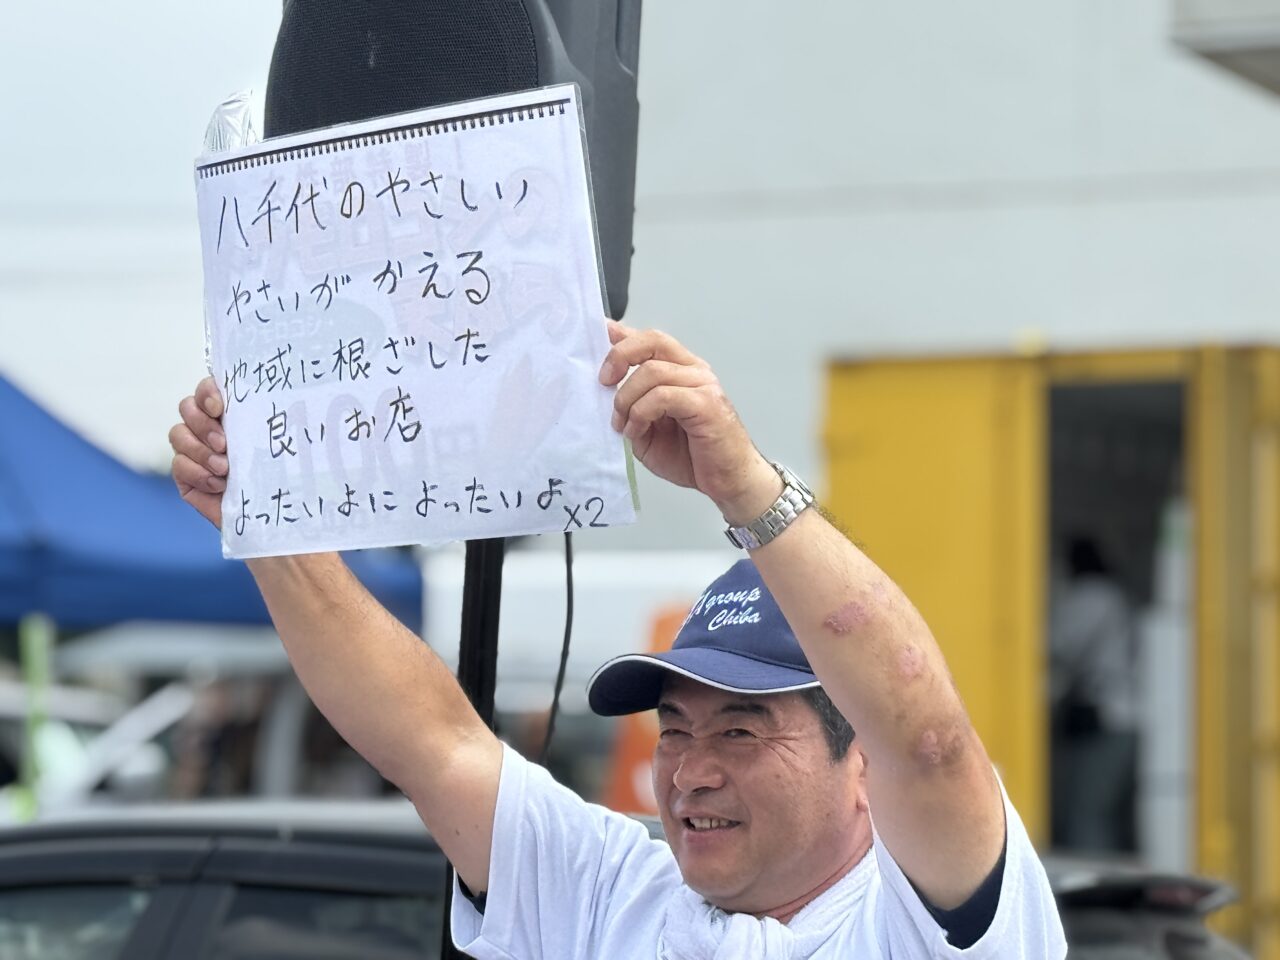 八千代のやさしい
やさいが かえる
地域に根ざした
良いお店
よったいよに よったいよ x2
group
Chiba